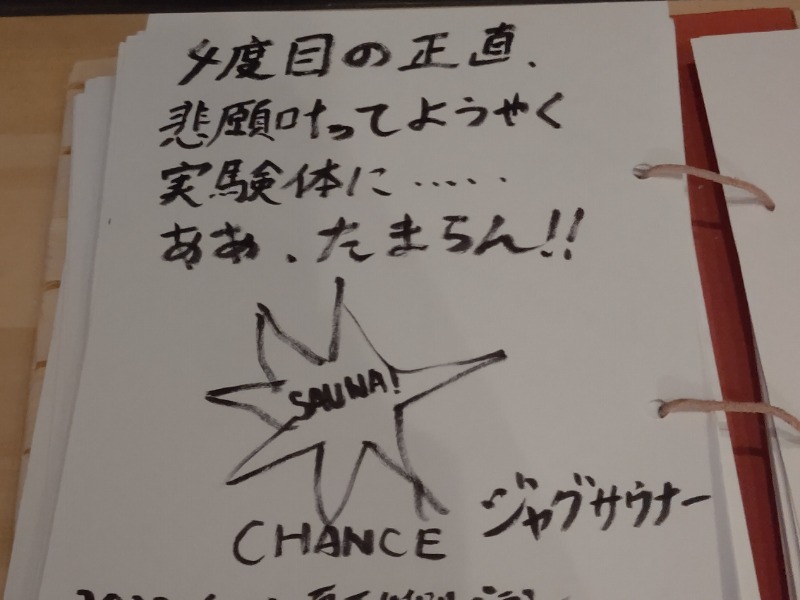 4度目の正直、
悲願叶ってようやく
実験体に……
ああ、たまらん!!
SAUNA!
CHANCE
ジャグサウナー